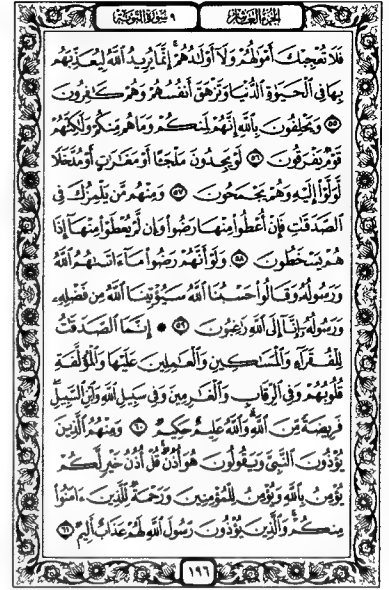 الجزء العاشر
٩ سورة التوبة
فَلَا تُعْجِبْكَ أَمْوَٰلُهُمْ وَلَآ أَوْلَـٰدُهُمْ إِنَّمَا يُرِيدُ ٱللَّهُ لِيُعَذِّبَهُم
بِهَا فِى ٱلْحَيَوٰةِ ٱلدُّنْيَا وَتَزْهَقَ أَنفُسُهُمْ وَهُمْ كَـٰفِرُونَ
۝٥٥ وَيَحْلِفُونَ بِٱللَّهِ إِنَّهُمْ لَمِنكُمْ وَمَا هُم مِّنكُمْ وَلَـٰكِنَّهُمْ
قَوْمٌ يَفْرَقُونَ ۝٥٦ لَوْ يَجِدُونَ مَلْجَـًٔا أَوْ مَغَـٰرَٰتٍ أَوْ مُدَّخَلًا
لَّوَلَّوْا۟ إِلَيْهِ وَهُمْ يَجْمَحُونَ ۝٥٧ وَمِنْهُم مَّن يَلْمِزُكَ فِى
ٱلصَّدَقَـٰتِ فَإِنْ أُعْطُوا۟ مِنْهَا رَضُوا۟ وَإِن لَّمْ يُعْطَوْا۟ مِنْهَآ إِذَا
هُمْ يَسْخَطُونَ ۝٥٨ وَلَوْ أَنَّهُمْ رَضُوا۟ مَآ ءَاتَىٰهُمُ ٱللَّهُ
وَرَسُولُهُۥ وَقَالُوا۟ حَسْبُنَا ٱللَّهُ سَيُؤْتِينَا ٱللَّهُ مِن فَضْلِهِۦ
وَرَسُولُهُۥٓ إِنَّآ إِلَى ٱللَّهِ رَٰغِبُونَ ۝٥٩ * إِنَّمَا ٱلصَّدَقَـٰتُ
لِلْفُقَرَآءِ وَٱلْمَسَـٰكِينِ وَٱلْعَـٰمِلِينَ عَلَيْهَا وَٱلْمُؤَلَّفَةِ
قُلُوبُهُمْ وَفِى ٱلرِّقَابِ وَٱلْغَـٰرِمِينَ وَفِى سَبِيلِ ٱللَّهِ وَٱبْنِ ٱلسَّبِيلِ
فَرِيضَةً مِّنَ ٱللَّهِ وَٱللَّهُ عَلِيمٌ حَكِيمٌ ۝٦٠ وَمِنْهُمُ ٱلَّذِينَ
يُؤْذُونَ ٱلنَّبِىَّ وَيَقُولُونَ هُوَ أُذُنٌ قُلْ أُذُنُ خَيْرٍ لَّكُمْ
يُؤْمِنُ بِٱللَّهِ وَيُؤْمِنُ لِلْمُؤْمِنِينَ وَرَحْمَةٌ لِّلَّذِينَ ءَامَنُوا۟
مِنكُمْ وَٱلَّذِينَ يُؤْذُونَ رَسُولَ ٱللَّهِ لَهُمْ عَذَابٌ أَلِيمٌ ۝٦١
١٩٦